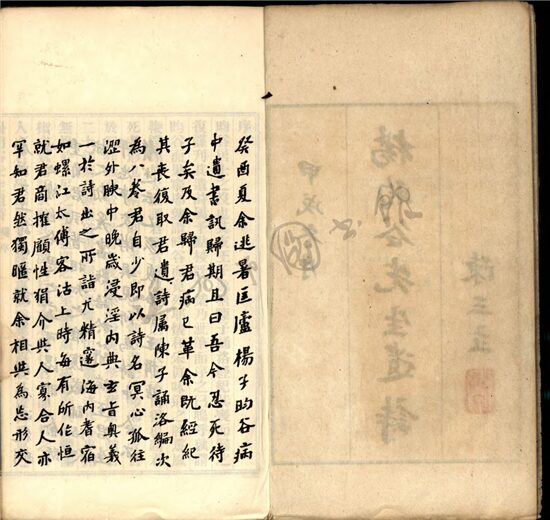 楊昀谷先生遺詩
陳三立
癸酉夏余避暑匡廬楊子昀谷病
中遺書訊歸期且曰吾今忍死待
子矣及余歸君病已革余既經紀
其喪復取君遺詩属陳子誦洛編次
為八卷君自少即以詩名冥心孤往
澀外腴中晚歲浸淫內典玄旨奧義
一於詩出之所詣尤精邃海內耆宿
如螺江太傅客沽上時每有所作恒
就君商榷顧性狷介與人寡合人亦
罕知君然獨暱就余相與為忘形交